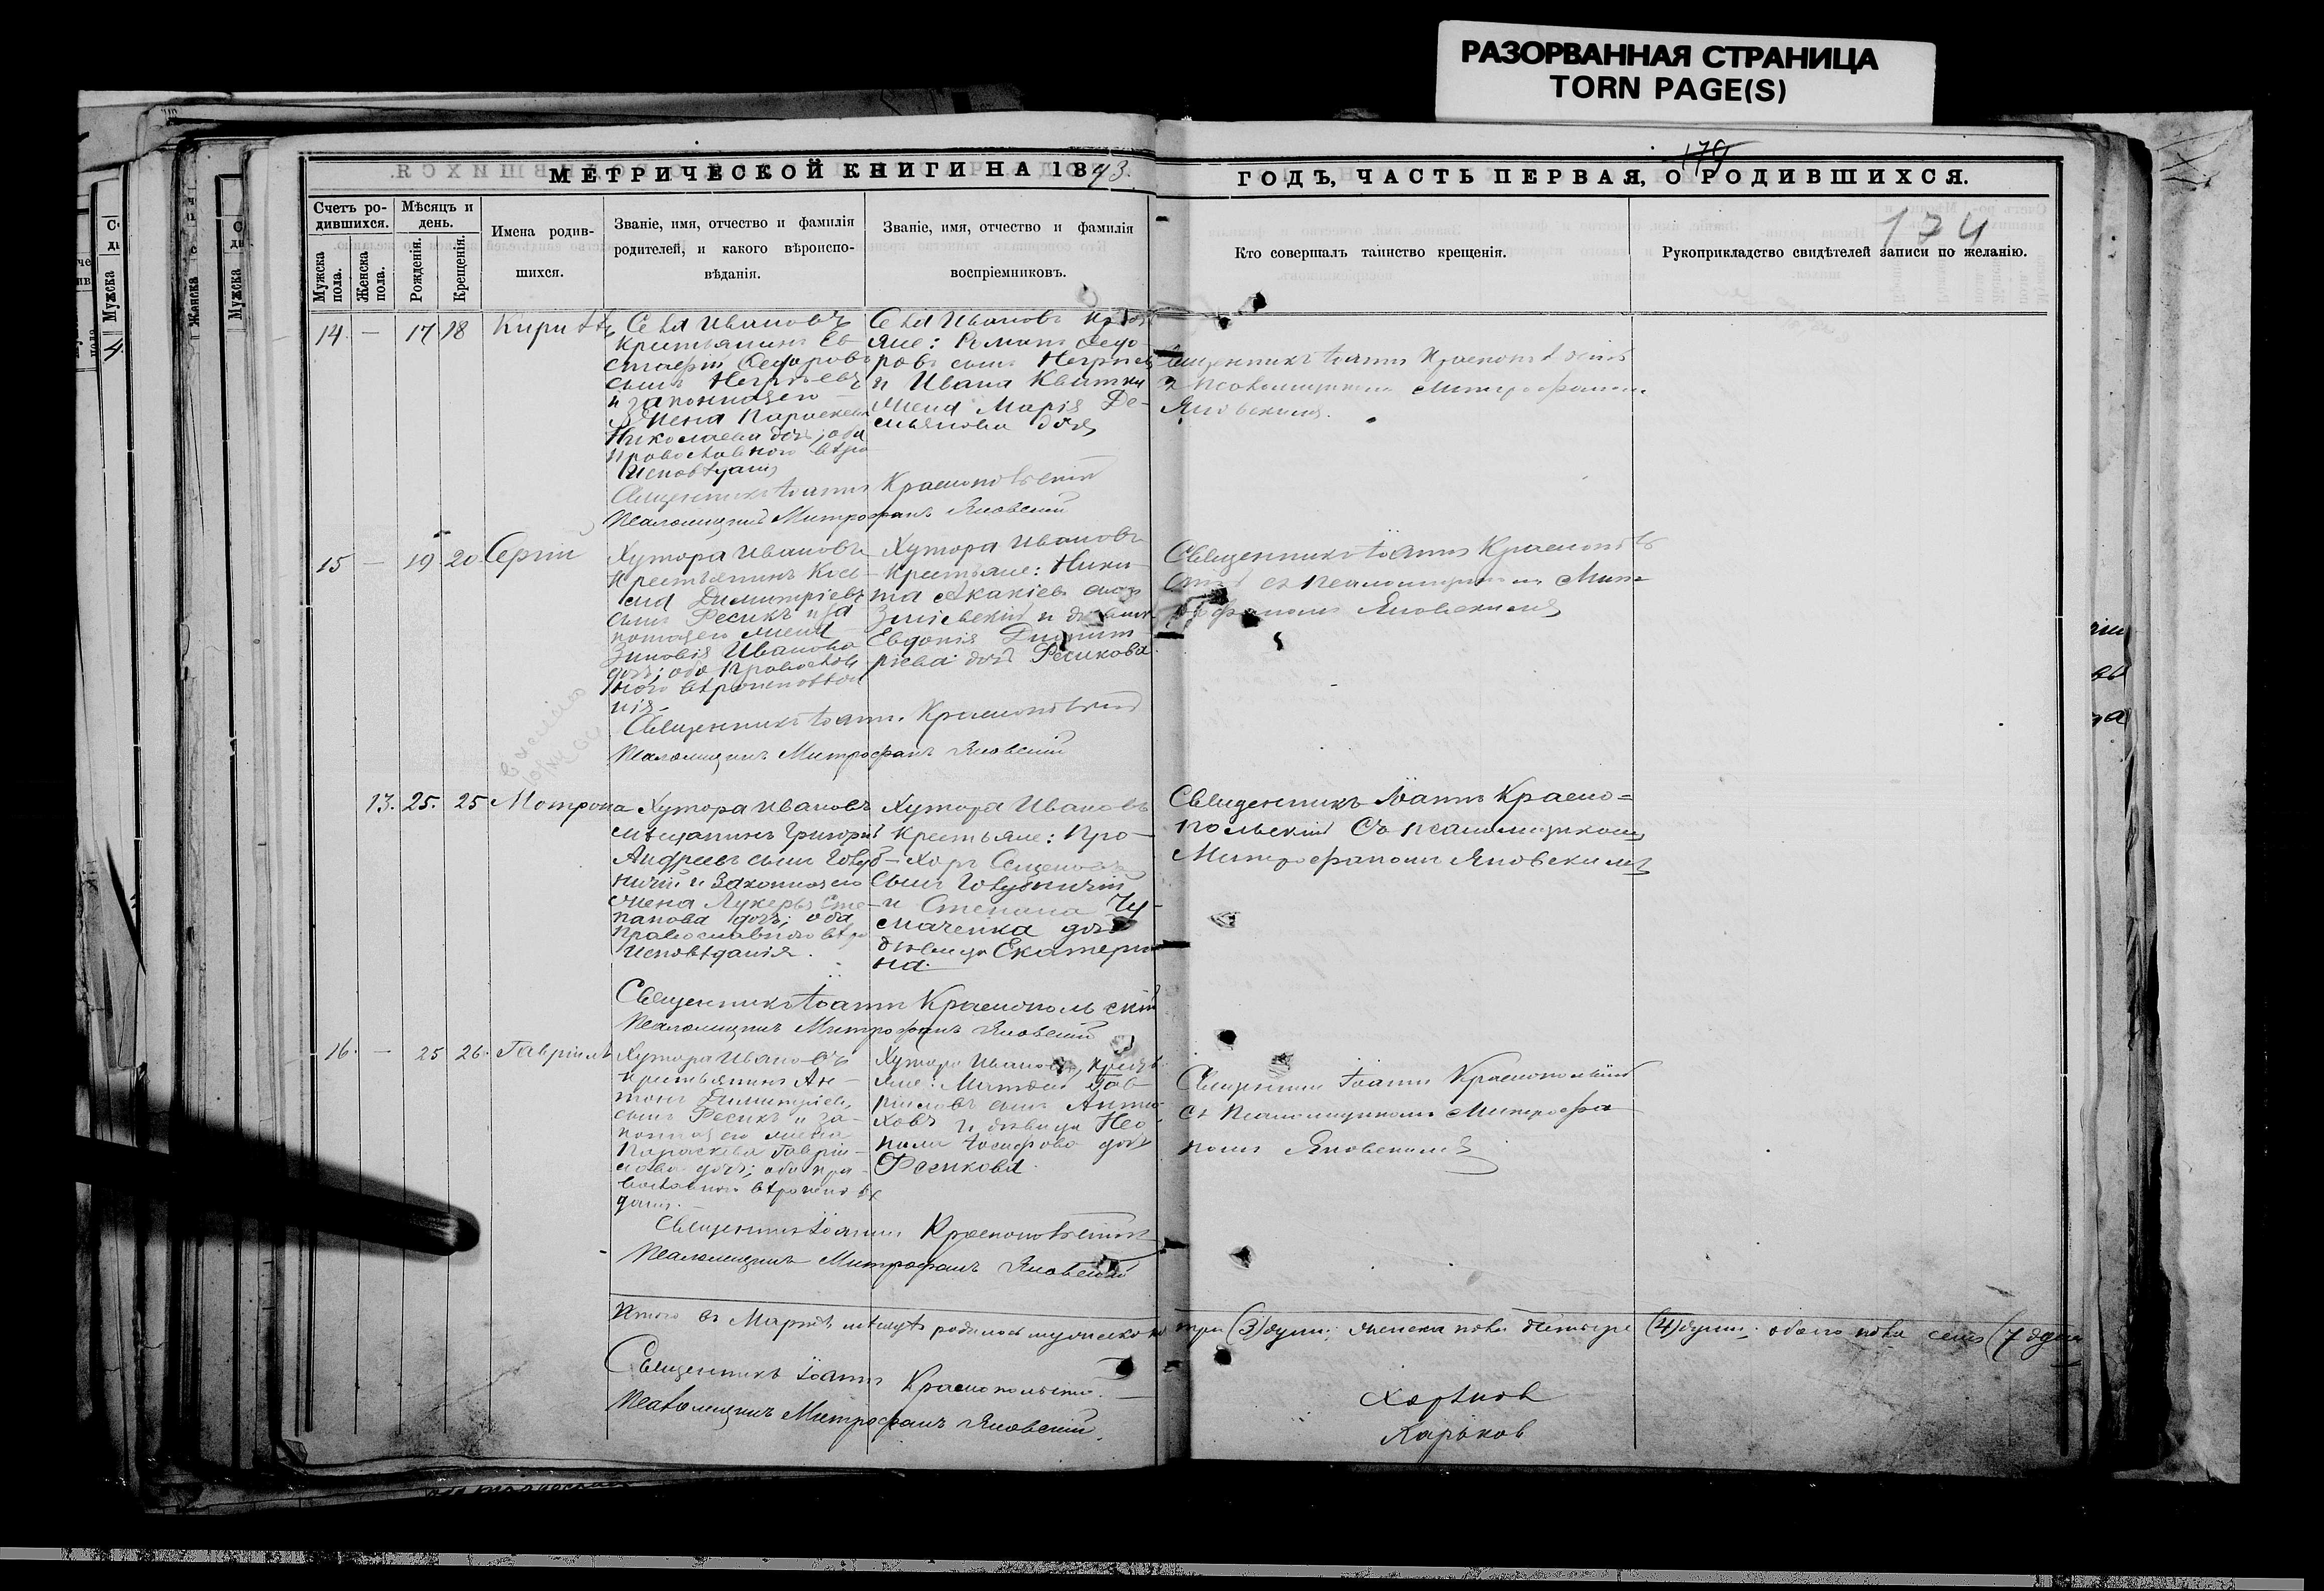 РАЗОРВАННАЯ СТРАНИЦА
TORN PAGE(S)
МЕТРИЧЕСКОЙ КНИГИ НА 1893.
ГОДЪ, ЧАСТЬ ПЕРВАЯ, О РОДИВШИХСЯ.
179
174
Счетъ ро-
дившихся.
Мужска
пола.
Женска
пола.
Мѣсяцъ и
день.
Рожденія.
Крещенія.
Имена родив-
шихся.
Званіе, имя, отчество и фамилія
родителей, и какого вѣроиспо-
вѣданія.
Званіе, имя, отчество и фамилія
воспріемниковъ.
Кто совершалъ таинство крещенія.
Рукоприкладство свидѣтелей записи по желанію.
14 — 17 18 Кириллъ
Села Ивановъ
крестьянинъ Ев-
стафій Федоровъ
сынъ
и законная его
жена Параскева
Николаева дочь; оба
православнаго вѣро
исповѣданія
Села Ивановъ
яне: Романъ Федо-
ровъ сынъ
и Ивана Квитки
жена Марія Де-
мьянова дочь
Священникъ Іоаннъ Краснопольскій
съ псаломщикомъ Митрофаномъ
Яновскимъ.
Священникъ Іоаннъ Краснопольскій
Псаломщикъ Митрофанъ Яновскій
15 — 19 20 Сергій
Хутора Ивановъ
крестьянинъ Кось-
ма Димитріевъ
сынъ Фесикъ и за
конная его жена
Зиновія Иванова
дочь; оба православ
наго вѣроисповѣда
нія.
Хутора Ивановъ
крестьяне: Ники-
та Акакіевъ сынъ
и дѣвица
Евдокія Димит
ріева дочь Фесикова.
Священникъ Іоаннъ Краснополь
скій съ псаломщикомъ Мит-
рофаномъ Яновскимъ
Священникъ Іоаннъ Краснопольскій
Псаломщикъ Митрофанъ Яновскій
13. 25. 25 Мотрона
Хутора Ивановъ
мѣщанинъ Григорій
Андреевъ сынъ Голуб-
ничій и законная его
жена Лукерья Сте-
панова дочь; оба
православнаго вѣро
исповѣданія.
Хутора Ивановъ
крестьяне: Про-
хоръ Семеновъ
сынъ Голубничій
и Степана Чу-
маченка дочь
дѣвица Екатери
на.
Священникъ Іоаннъ Красно=
польскій съ псаломщикомъ
Митрофаномъ Яновскимъ
Священникъ Іоаннъ Краснопольскій
Псаломщикъ Митрофанъ Яновскій
16. — 25 26. Гавріилъ
Хутора Ивановъ
крестьянинъ Ан-
тонъ Димитріевъ
сынъ Фесикъ и за-
конная его жена
Параскева Гаврі-
лова дочь; оба пра-
вославнаго вѣроисповѣ
данія.
Хутора Ивановъ, крестья
яне: Матвей Гав-
ріиловъ сынъ
и дѣвица Нео
нила Іосифова дочь
Фесикова.
Священникъ Іоаннъ Краснопольскій
съ псаломщикомъ Митрофа
номъ Яновскимъ
Священникъ Іоаннъ Краснопольскій
Псаломщикъ Митрофанъ Яновскій
Итого въ Мартѣ мѣсяцѣ родилось мужеска по три (3) души; женска пола четыре (4) души; обоего пола семь (7 душъ
Священникъ Іоаннъ Краснопольскій.
Псаломщикъ Митрофанъ Яновскій.
Харьков
Харьков